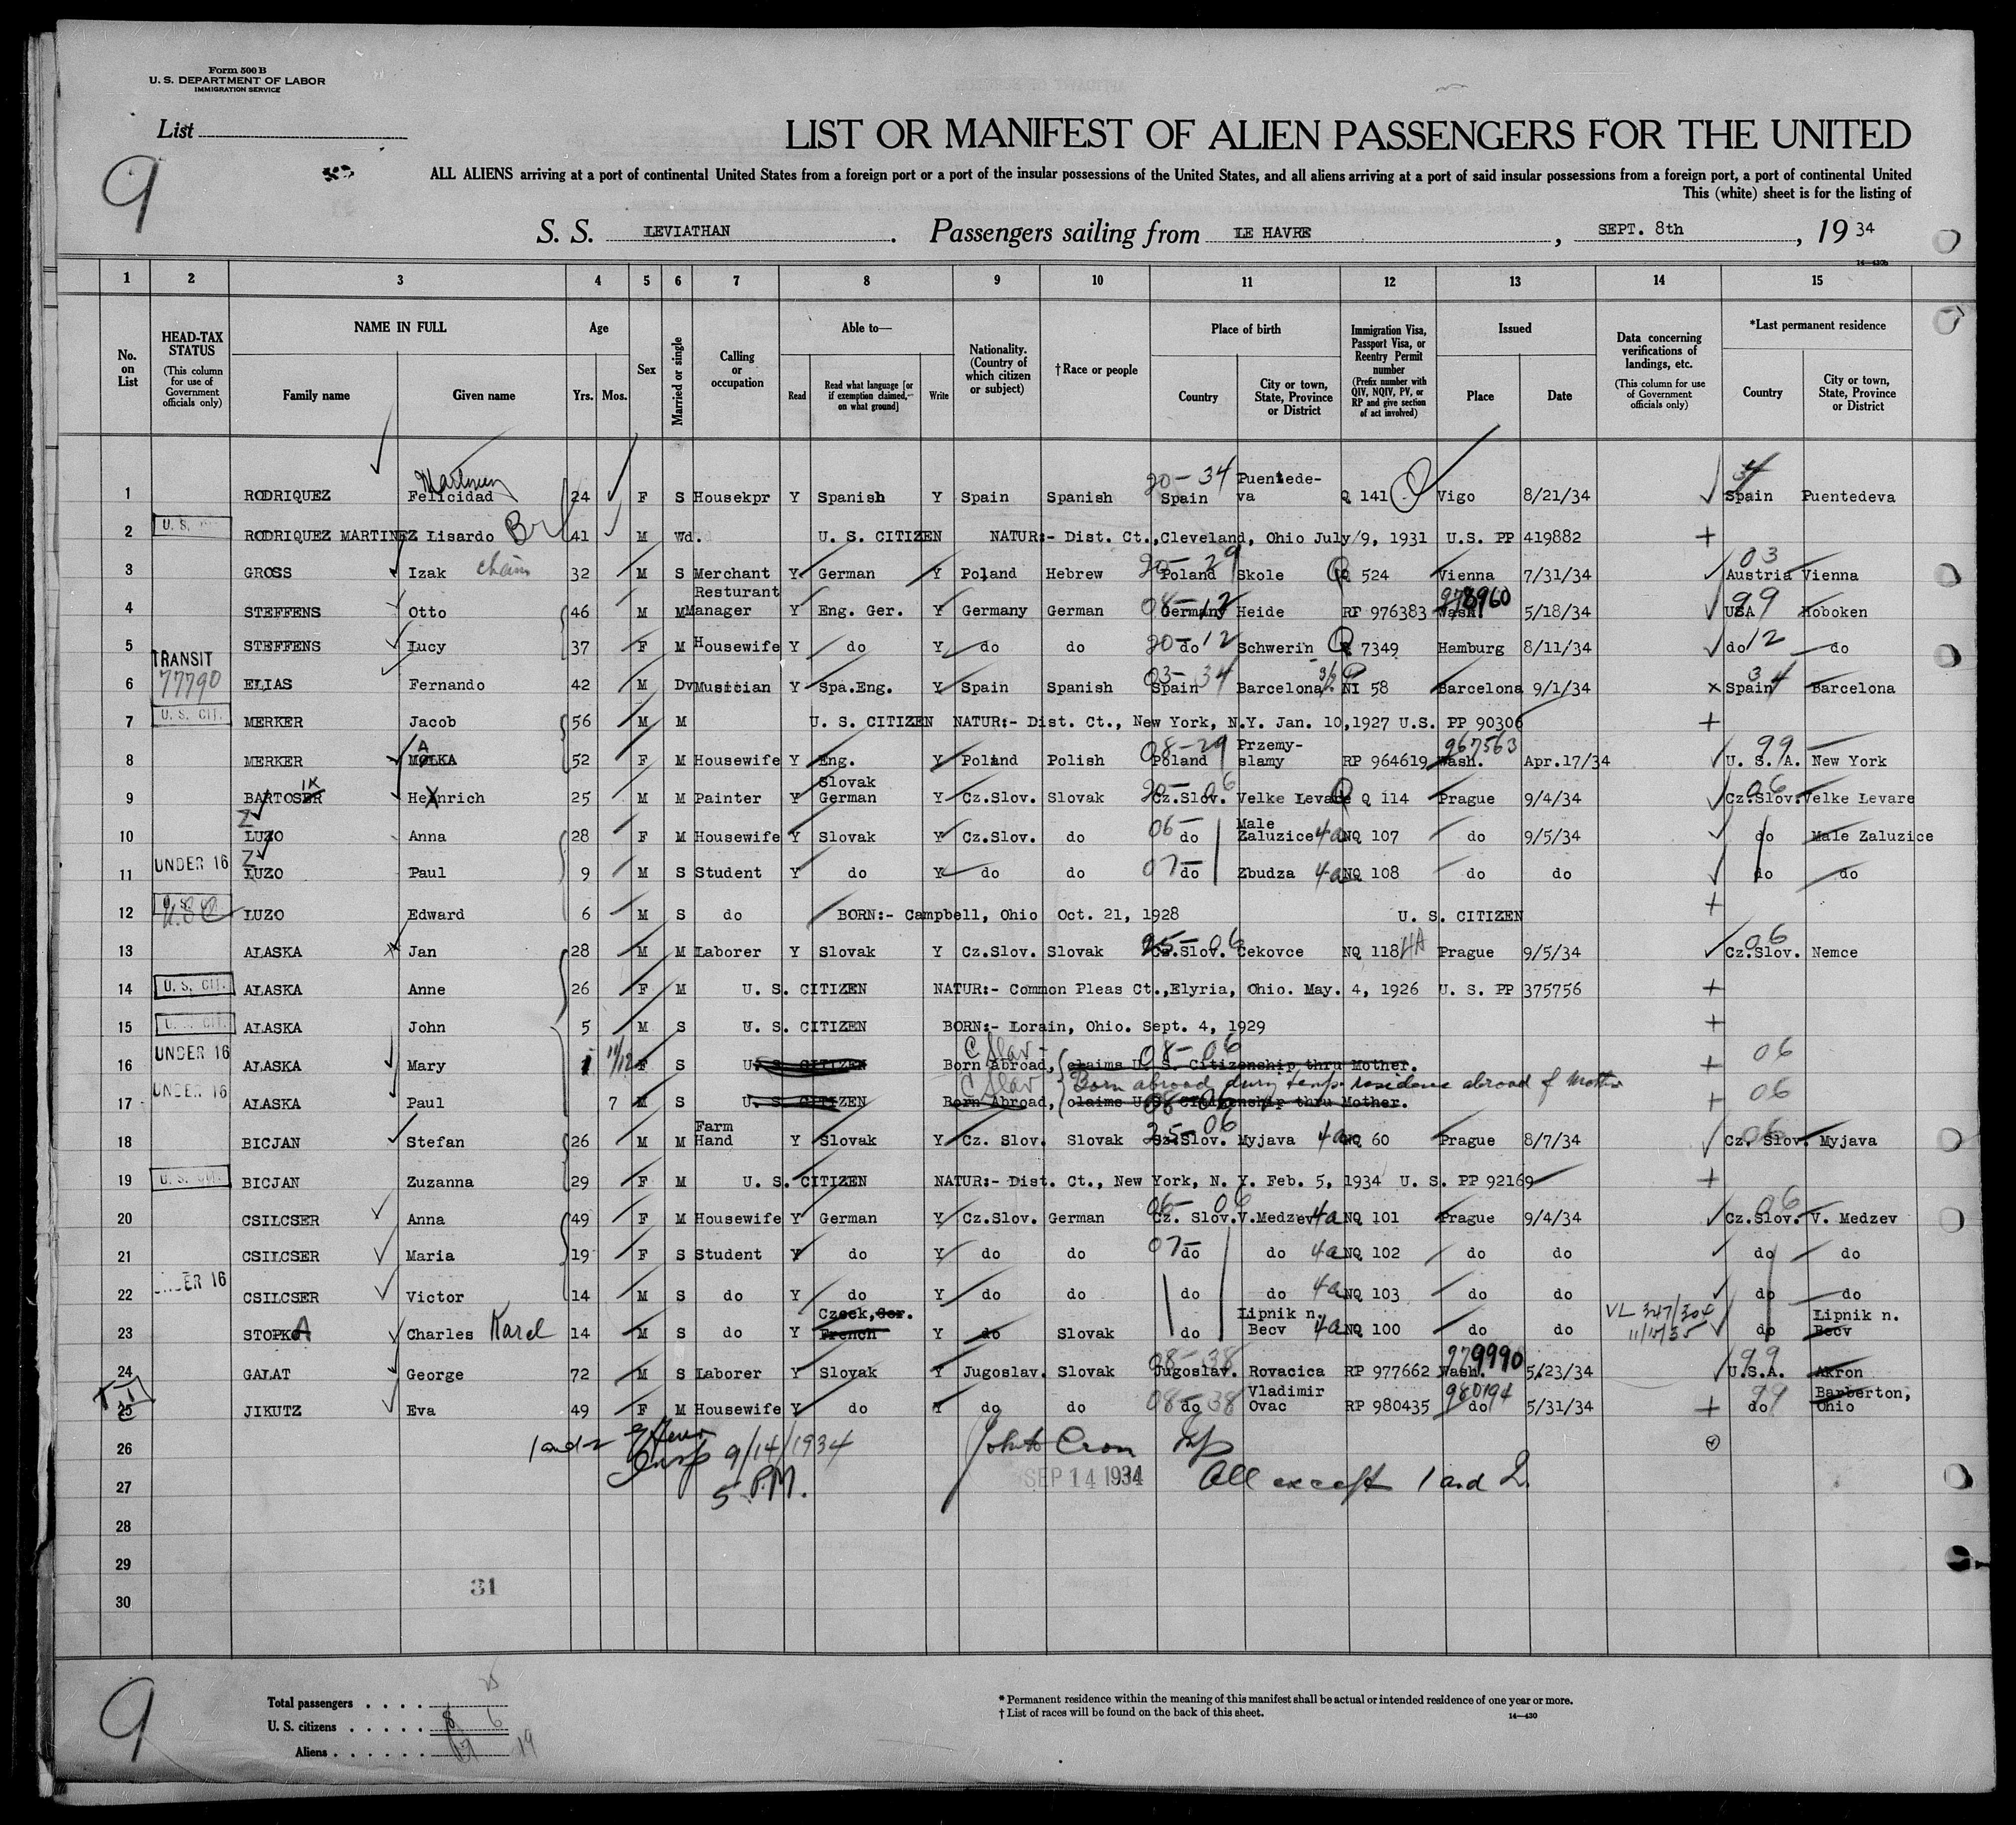 Form 500 B
U. S. DEPARTMENT OF LABOR
IMMIGRATION SERVICE
List
9
LIST OR MANIFEST OF ALIEN PASSENGERS FOR THE UNITED
ALL ALIENS arriving at a port of continental United States from a foreign port or a port of the insular possessions of the United States, and all aliens arriving at a port of said insular possessions from a foreign port, a port of continental United
This (white) sheet is for the listing of
S. S. LEVIATHAN. Passengers sailing from LE HAVRE, SEPT. 8th, 19 34
14—430b
1 2 3 4 5 6 7 8 9 10 11 12 13 14 15
No. on List
HEAD-TAX STATUS (This column for use of Government officials only)
NAME IN FULL Family name Given name
Age Yrs. Mos.
Sex
Married or single
Calling or occupation
Able to— Read Read what language [or if exemption claimed, on what ground] Write
Nationality. (Country of which citizen or subject)
†Race or people
Place of birth Country City or town, State, Province or District
Immigration Visa, Passport Visa, or Reentry Permit number (Prefix number with QIV, NQIV, PV, or RP and give section of act involved)
Issued Place Date
Data concerning verifications of landings, etc. (This column for use of Government officials only)
*Last permanent residence Country City or town, State, Province or District
1 RODRIQUEZ Felicidad 24 F S Housekpr Y Spanish Y Spain Spanish 20-34 Spain Puentede-va Q 141 Vigo 8/21/34 34 Spain Puentedeva
2 U. S. RODRIQUEZ MARTINEZ Lisardo Br 41 M Wd. U. S. CITIZEN NATUR:- Dist. Ct.,Cleveland, Ohio July/9, 1931 U.S. PP 419882 +
3 GROSS Izak Chaim 32 M S Merchant Y German Y Poland Hebrew 20-29 Poland Skole Q 524 Vienna 7/31/34 03 Austria Vienna
4 STEFFENS Otto 46 M M Resturant Manager Y Eng. Ger. Y Germany German 08-12 Germany Heide RP 976383 978960 Wash. 5/18/34 99 USA Hoboken
5 STEFFENS Lucy 37 F M Housewife Y do Y do do 20-12 do Schwerin Q 7349 Hamburg 8/11/34 do 12 do
6 TRANSIT 77790 ELIAS Fernando 42 M Dv Musician Y Spa.Eng. Y Spain Spanish 03-34 Spain Barcelona NI 58 Barcelona 9/1/34 x 34 Spain Barcelona
7 U. S. CIT. MERKER Jacob 56 M M U. S. CITIZEN NATUR:- Dist. Ct., New York, N.Y. Jan. 10,1927 U.S. PP 90306 +
8 MERKER MALKA 52 F M Housewife Y Eng. Y Poland Polish 08-29 Poland Przemy-slamy RP 964619 967563 Wash. Apr.17/34 99 U. S. A. New York
9 BARTOSER IK Heinrich 25 M M Painter Y Slovak German Y Cz.Slov. Slovak 20-06 Cz.Slov. Velke Levare Q Q 114 Prague 9/4/34 06 Cz.Slov. Velke Levare
10 LUZO Z Anna 28 F M Housewife Y Slovak Y Cz.Slov. do 06- do Male Zaluzice 4a NQ 107 do 9/5/34 do Male Zaluzice
11 UNDER 16 LUZO Z Paul 9 M S Student Y do Y do do 07- do Zbudza 4a NQ 108 do do do do
12 U. S. C LUZO Edward 6 M S do BORN:- Campbell, Ohio Oct. 21, 1928 U. S. CITIZEN +
13 ALASKA Jan 28 M M Laborer Y Slovak Y Cz.Slov. Slovak 25-06 Cz.Slov. Cekovce NQ 118 4A Prague 9/5/34 06 Cz.Slov. Nemce
14 U. S. CIT. ALASKA Anne 26 F M U. S. CITIZEN NATUR:- Common Pleas Ct.,Elyria, Ohio. May. 4, 1926 U. S. PP 375756 +
15 U. S. CIT. ALASKA John 5 M S U. S. CITIZEN BORN:- Lorain, Ohio. Sept. 4, 1929 +
16 UNDER 16 ALASKA Mary 11/12 F S U. S. CITIZEN C Slov- Born Abroad, claims U. S. Citizenship thru Mother. 08-06 + 06
Born abroad during temp residence abroad of Mother
17 UNDER 16 ALASKA Paul 7 M S U. S. CITIZEN C Slov Born Abroad, claims U.S. Citizenship thru Mother. 08-06 + 06
18 BICJAN Stefan 26 M M Farm Hand Y Slovak Y Cz. Slov. Slovak 25-06 Cz.Slov. Myjava 4a NQ 60 Prague 8/7/34 06 Cz. Slov. Myjava
19 U. S. CIT. BICJAN Zuzanna 29 F M U. S. CITIZEN NATUR:- Dist. Ct., New York, N. Y. Feb. 5, 1934 U. S. PP 92169 +
20 CSILCSER Anna 49 F M Housewife Y German Y Cz.Slov. German 06-06 Cz. Slov. V.Medzev 4a NQ 101 Prague 9/4/34 06 Cz.Slov. V. Medzev
21 CSILCSER Maria 19 F S Student Y do Y do do 07- do do 4a NQ 102 do do do do
22 UNDER 16 CSILCSER Victor 14 M S do Y do Y do do do do 4a NQ 103 do do do do
23 STOPKO A Charles Karel 14 M S do Y Czeck, Ger. French Y do Slovak do Lipnik n. Becv 4a NQ 100 do do VL 347/304 11/12/35 do Lipnik n. Becv
24 GALAT George 72 M S Laborer Y Slovak Y Jugoslav. Slovak 08-38 Jugoslav. Rovacica RP 977662 979990 Wash. 5/23/34 99 U.S.A. Akron
25 JIKUTZ Eva 49 F M Housewife Y do Y do do 08-38 do Vladimir Ovac RP 980435 980194 do 5/31/34 + 99 do Barberton, Ohio
26 1 and 2 Insp 9/14/1934 5 P.M. John Cron
27 SEP 14 1934 All except 1 and 2
28
29
30
31
9
Total passengers . . . . 25
U. S. citizens . . . . . 8 6
Aliens . . . . . . 17 19
* Permanent residence within the meaning of this manifest shall be actual or intended residence of one year or more.
† List of races will be found on the back of this sheet.
14—430